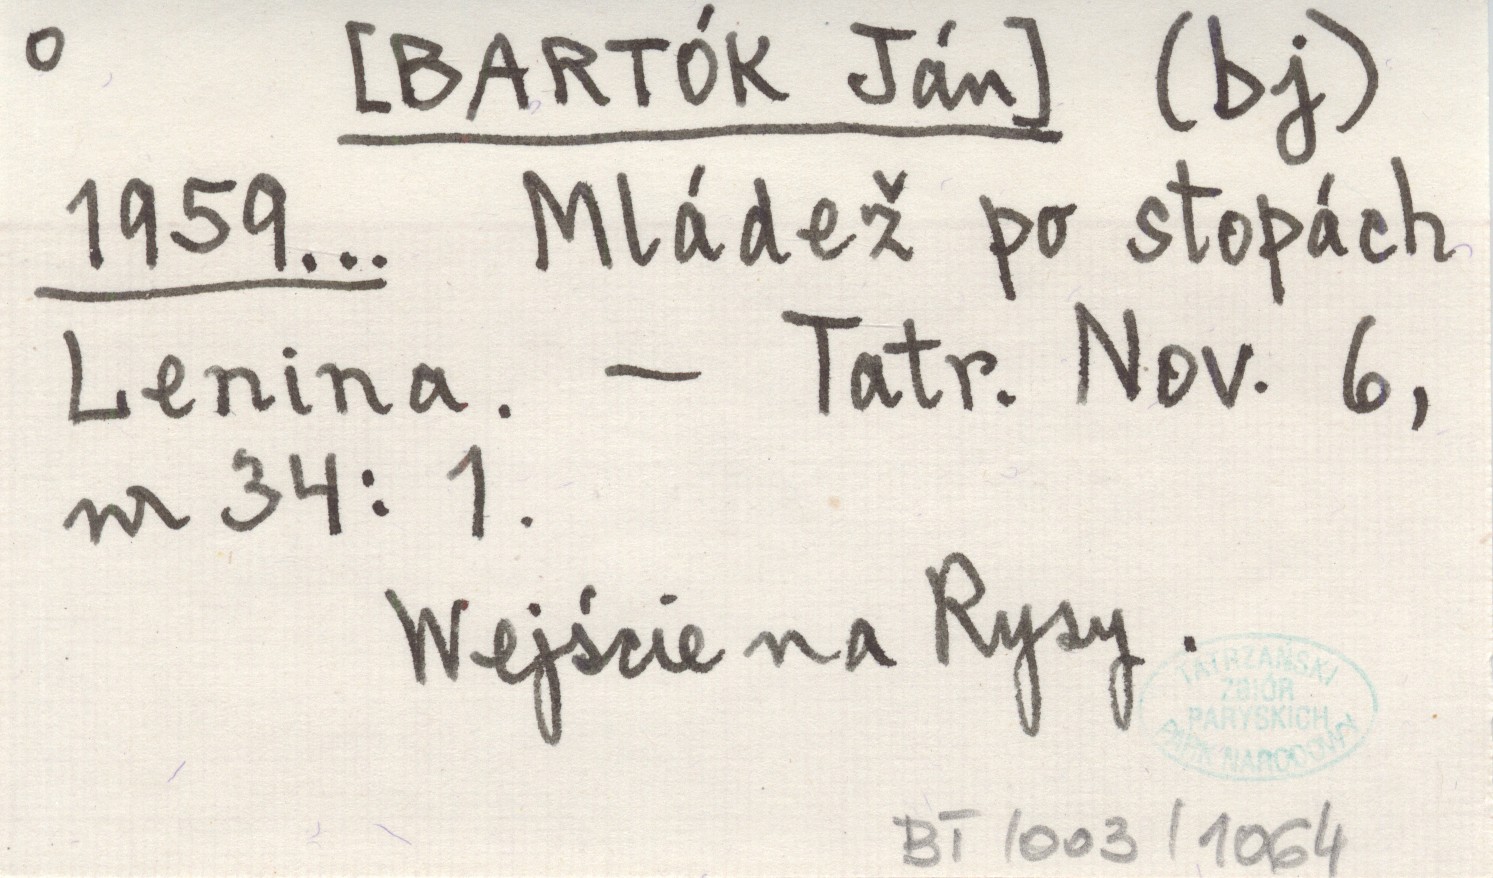 o [BARTÓK Ján] (bj)
1959... Mládež po stopách
Lenina. — Tatr. Nov. 6,
nr 34: 1.
Wejście na Rysy.
TATRZAŃSKI
ZBIÓR
PARYSKICH
PARK NARODOWY
BT /003 / 1064